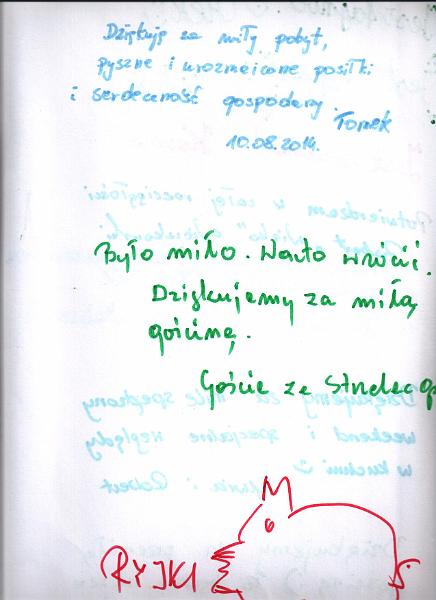 Dziękuję za miły pobyt,
pyszne i urozmaicone posiłki
i serdeczność gospodarzy.
Tomek
10.08.2014.
Było miło. Warto wrócić.
Dziękujemy za miłą
gościnę.
Goście ze
RYJKI